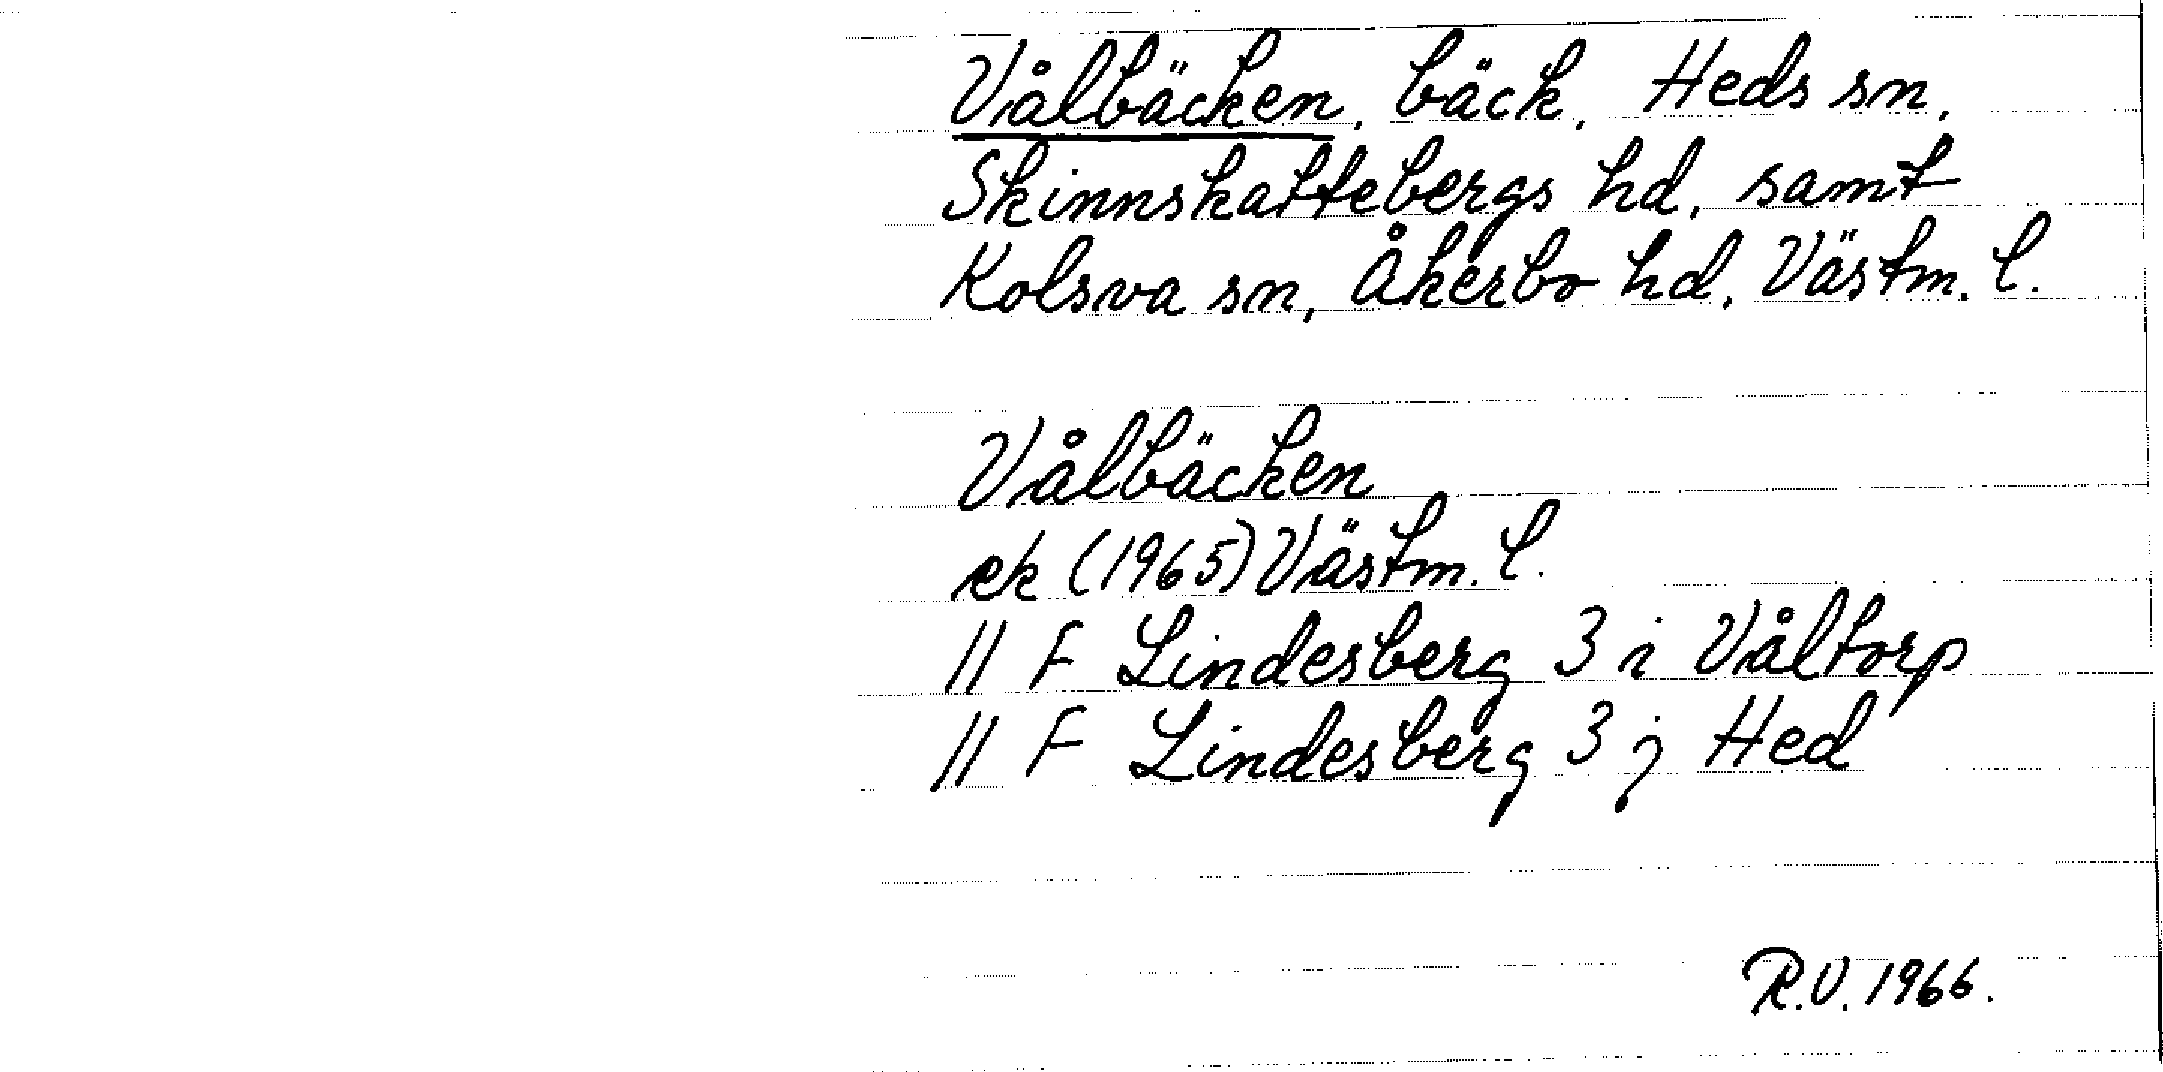 Vålbäcken, bäck, Heds sn,
Skinnskattebergs hd, samt
Kolsva sn, Åkerbo hd, Västm. l.
Vålbäcken
ek (1965) Västm. l.
// F Lindesberg 3 i Våltorp
// F Lindesberg 3 j Hed
R.V. 1966.